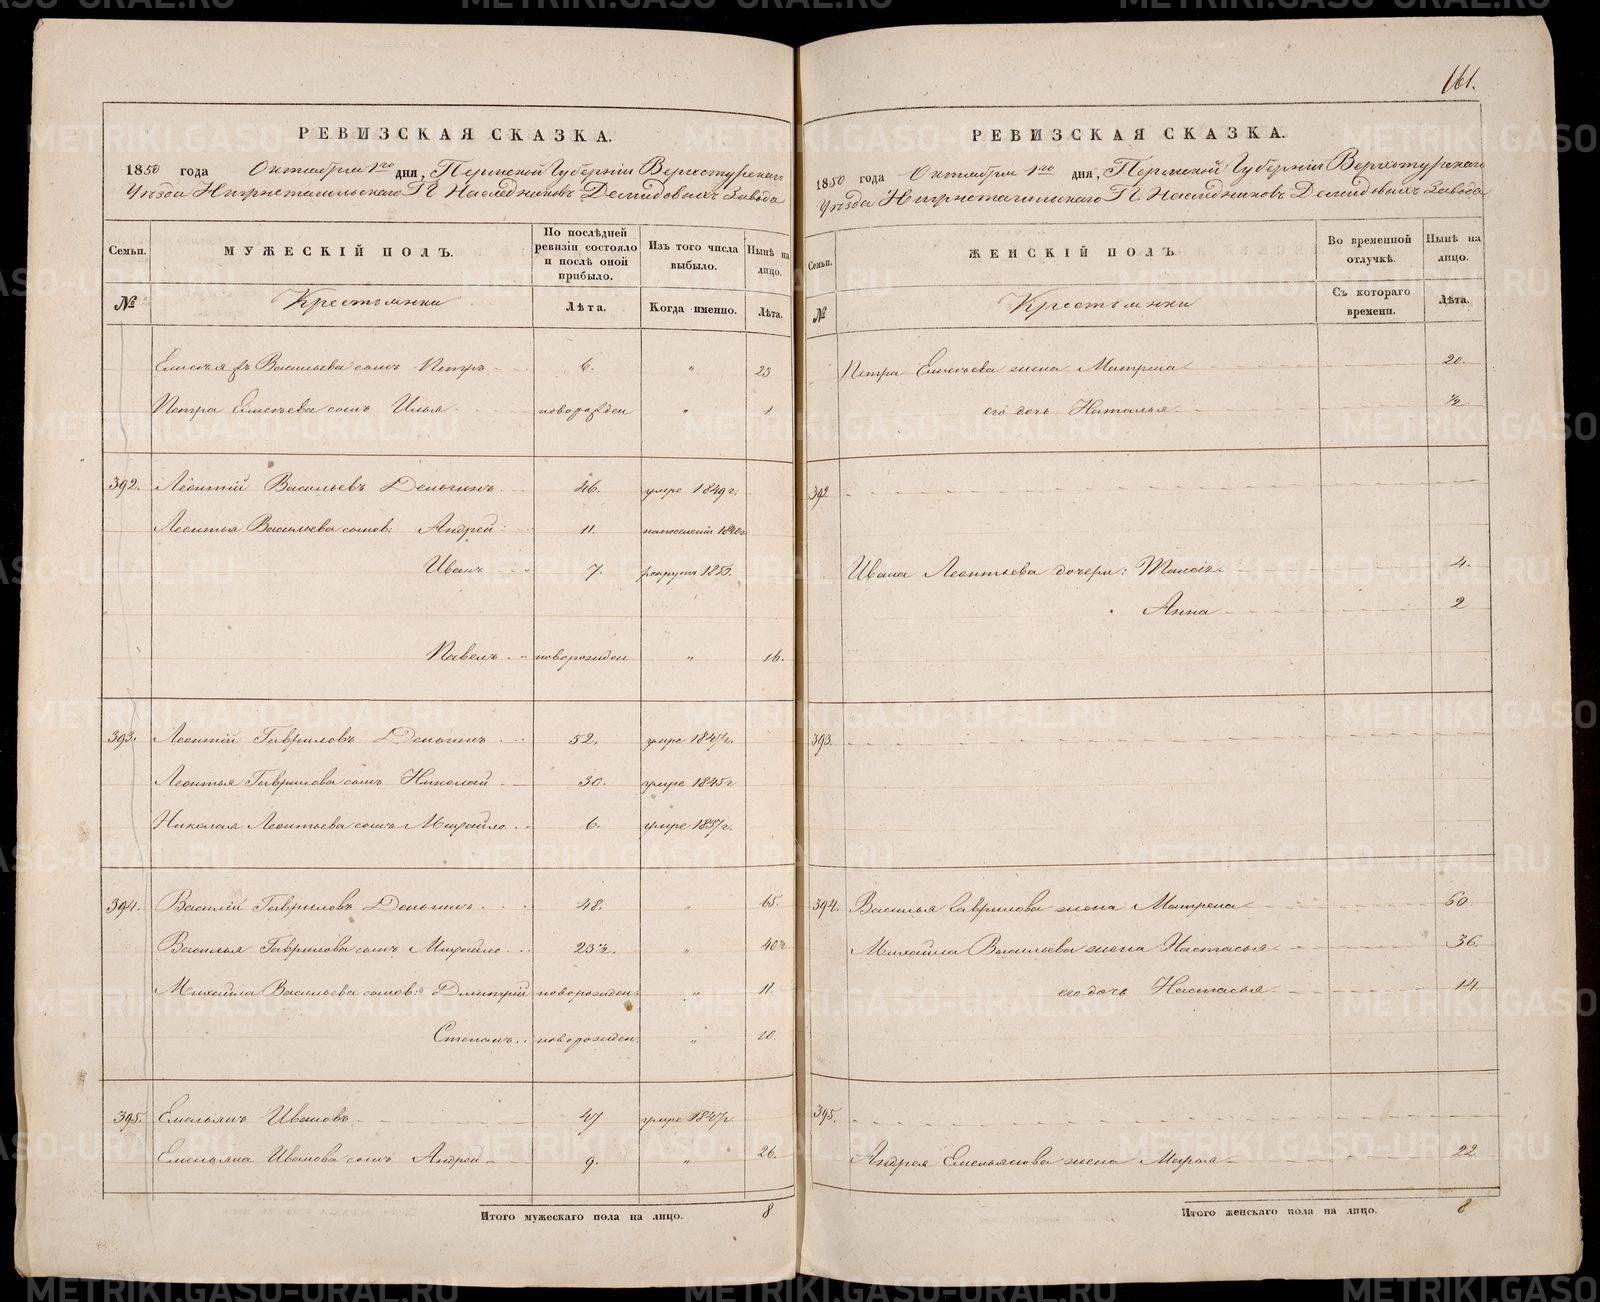 161.
РЕВИЗСКАЯ СКАЗКА.
1850 года Октября 1го дня, Пермской Губерніи Верхотурскаго
Уѣзда Нижнетагильскаго Г. Наслѣдниковъ Демидовыхъ Завода
Семьи.
МУЖЕСКІЙ ПОЛЪ.
По послѣдней ревизіи состояло и послѣ оной прибыло.
Изъ того числа выбыло.
Нынѣ на лицо.
№
Крестьянки
Лѣта.
Когда именно.
Лѣта.
Васильева сынъ Петръ 6. " 23
Петра сынъ Илья новорожден " 1
392. Леонтій Васильевъ 46. умре 1849 г.
Леонтья Васильева сынов: Андрей 11.
Иванъ 7. рекрутъ 1850.
Павелъ новорожден " 16.
393. Леонтій Гавриловъ 52. умре 1847 г.
Леонтья Гаврилова сынъ Николай 30. умре 1845 г
Николая Леонтьева сынъ Михайло 6. умре 1837 г.
394. Василій Гавриловъ 48. " 65.
Василья Гаврилова сынъ Михайло 23½. " 40½
Михайла Васильева сынов: Дмитрій новорожден " 11.
Степанъ новорожден " 10.
395. Емельянъ Ивановъ 47 умре 1847 г.
Емельяна Иванова сынъ Андрей 9. " 26.
Итого мужескаго пола на лицо. 8
РЕВИЗСКАЯ СКАЗКА.
1850 года Октября 1го дня, Пермской Губерніи Верхотурскаго
Уѣзда Нижнетагильскаго Г. Наслѣдниковъ Демидовыхъ Завода
Семьи.
ЖЕНСКІЙ ПОЛЪ
Во временной отлучкѣ.
Нынѣ на лицо.
№
Крестьянки
Съ котораго времени.
Лѣта.
Петра жена Матрена 20
его дочь Наталья ½
392
Ивана Леонтьева дочери: 4.
Анна 2
393.
394. Василья Гаврилова жена Матрена 60.
Михайла Васильева жена Настасья 36.
его дочь Настасья 14
395.
Андрея Емельянова жена Марья 22
Итого женскаго пола на лицо. 8
METRIKI.GASO-URAL.RU